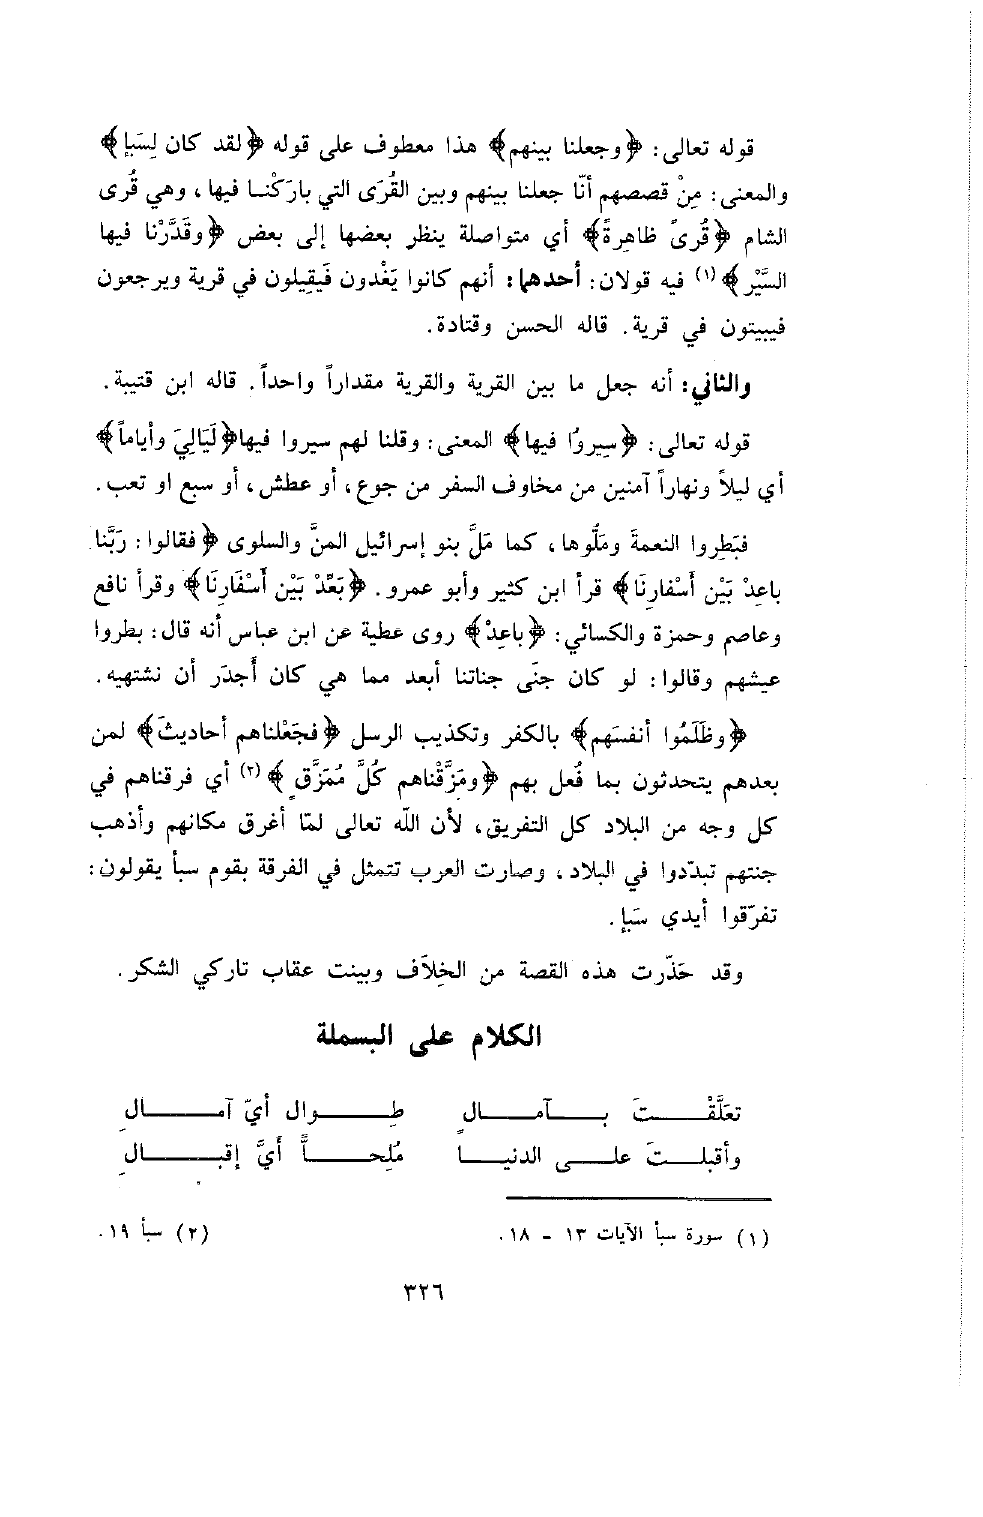 قوله تعالى: ﴿وجعلنا بينهم﴾ هذا معطوف على قوله ﴿لقد كان لِسَبإ﴾
والمعنى: مِنْ قصصهم أنّا جعلنا بينهم وبين القُرَى التي بارَكْنا فيها، وهي قُرى
الشام ﴿قُرىً ظاهِرةً﴾ أي متواصلة ينظر بعضها إلى بعض ﴿وقَدَّرْنا فيها
السَّيْر﴾(١) فيه قولان: أحدهما: أنهم كانوا يَغْدون فَيقِيلون في قرية ويرجعون
فيبيتون في قرية. قاله الحسن وقتادة.
والثاني: أنه جعل ما بين القرية والقرية مقداراً واحداً. قاله ابن قتيبة.
قوله تعالى: ﴿سِيروُا فيها﴾ المعنى: وقلنا لهم سيروا فيها ﴿لَيَالِيَ وأياماً﴾
أي ليلاً ونهاراً آمنين من مخاوف السفر من جوع، أو عطش، أو سبع او تعب.
فبَطِروا النعمةَ ومَلُّوها، كما مَلَّ بنو إسرائيل المنَّ والسلوى ﴿فقالوا: رَبَّنا
باعِدْ بَيْن أَسْفارِنَا﴾ قرأ ابن كثير وأبو عمرو. ﴿بَعِّدْ بَيْن أسْفَارِنَا﴾ وقرأ نافع
وعاصم وحمزة والكسائي: ﴿باعِدْ﴾ روى عطية عن ابن عباس أنه قال: بطروا
عيشهم وقالوا: لو كان جنَى جناتنا أبعد مما هي كان أجدَر أن نشتهيه.
﴿وظَلَمُوا أنفسَهم﴾ بالكفر وتكذيب الرسل ﴿فجَعَلناهم أحاديثَ﴾ لمن
بعدهم يتحدثون بما فُعل بهم ﴿ومَزَّقْناهم كُلَّ مُمَزَّقٍ﴾(٢) أي فرقناهم في
كل وجه من البلاد كل التفريق، لأن اللّه تعالى لمّا أغرق مكانهم وأذهب
جنتهم تبدّدوا في البلاد، وصارت العرب تتمثل في الفرقة بقوم سبأ يقولون:
تفرّقوا أيدي سَبإ.
وقد حَذّرت هذه القصة من الخِلاَف وبينت عقاب تاركي الشكر.
الكلام على البسملة
تعَلَّقْتَ بآمالٍ طِوال أيّ آمالِ
وأقبلتَ على الدنيا مُلِحاًّ أيَّ إقبالِ
(١) سورة سبأ الآيات ١٣ - ١٨. (٢) سبأ ١٩.
٣٢٦